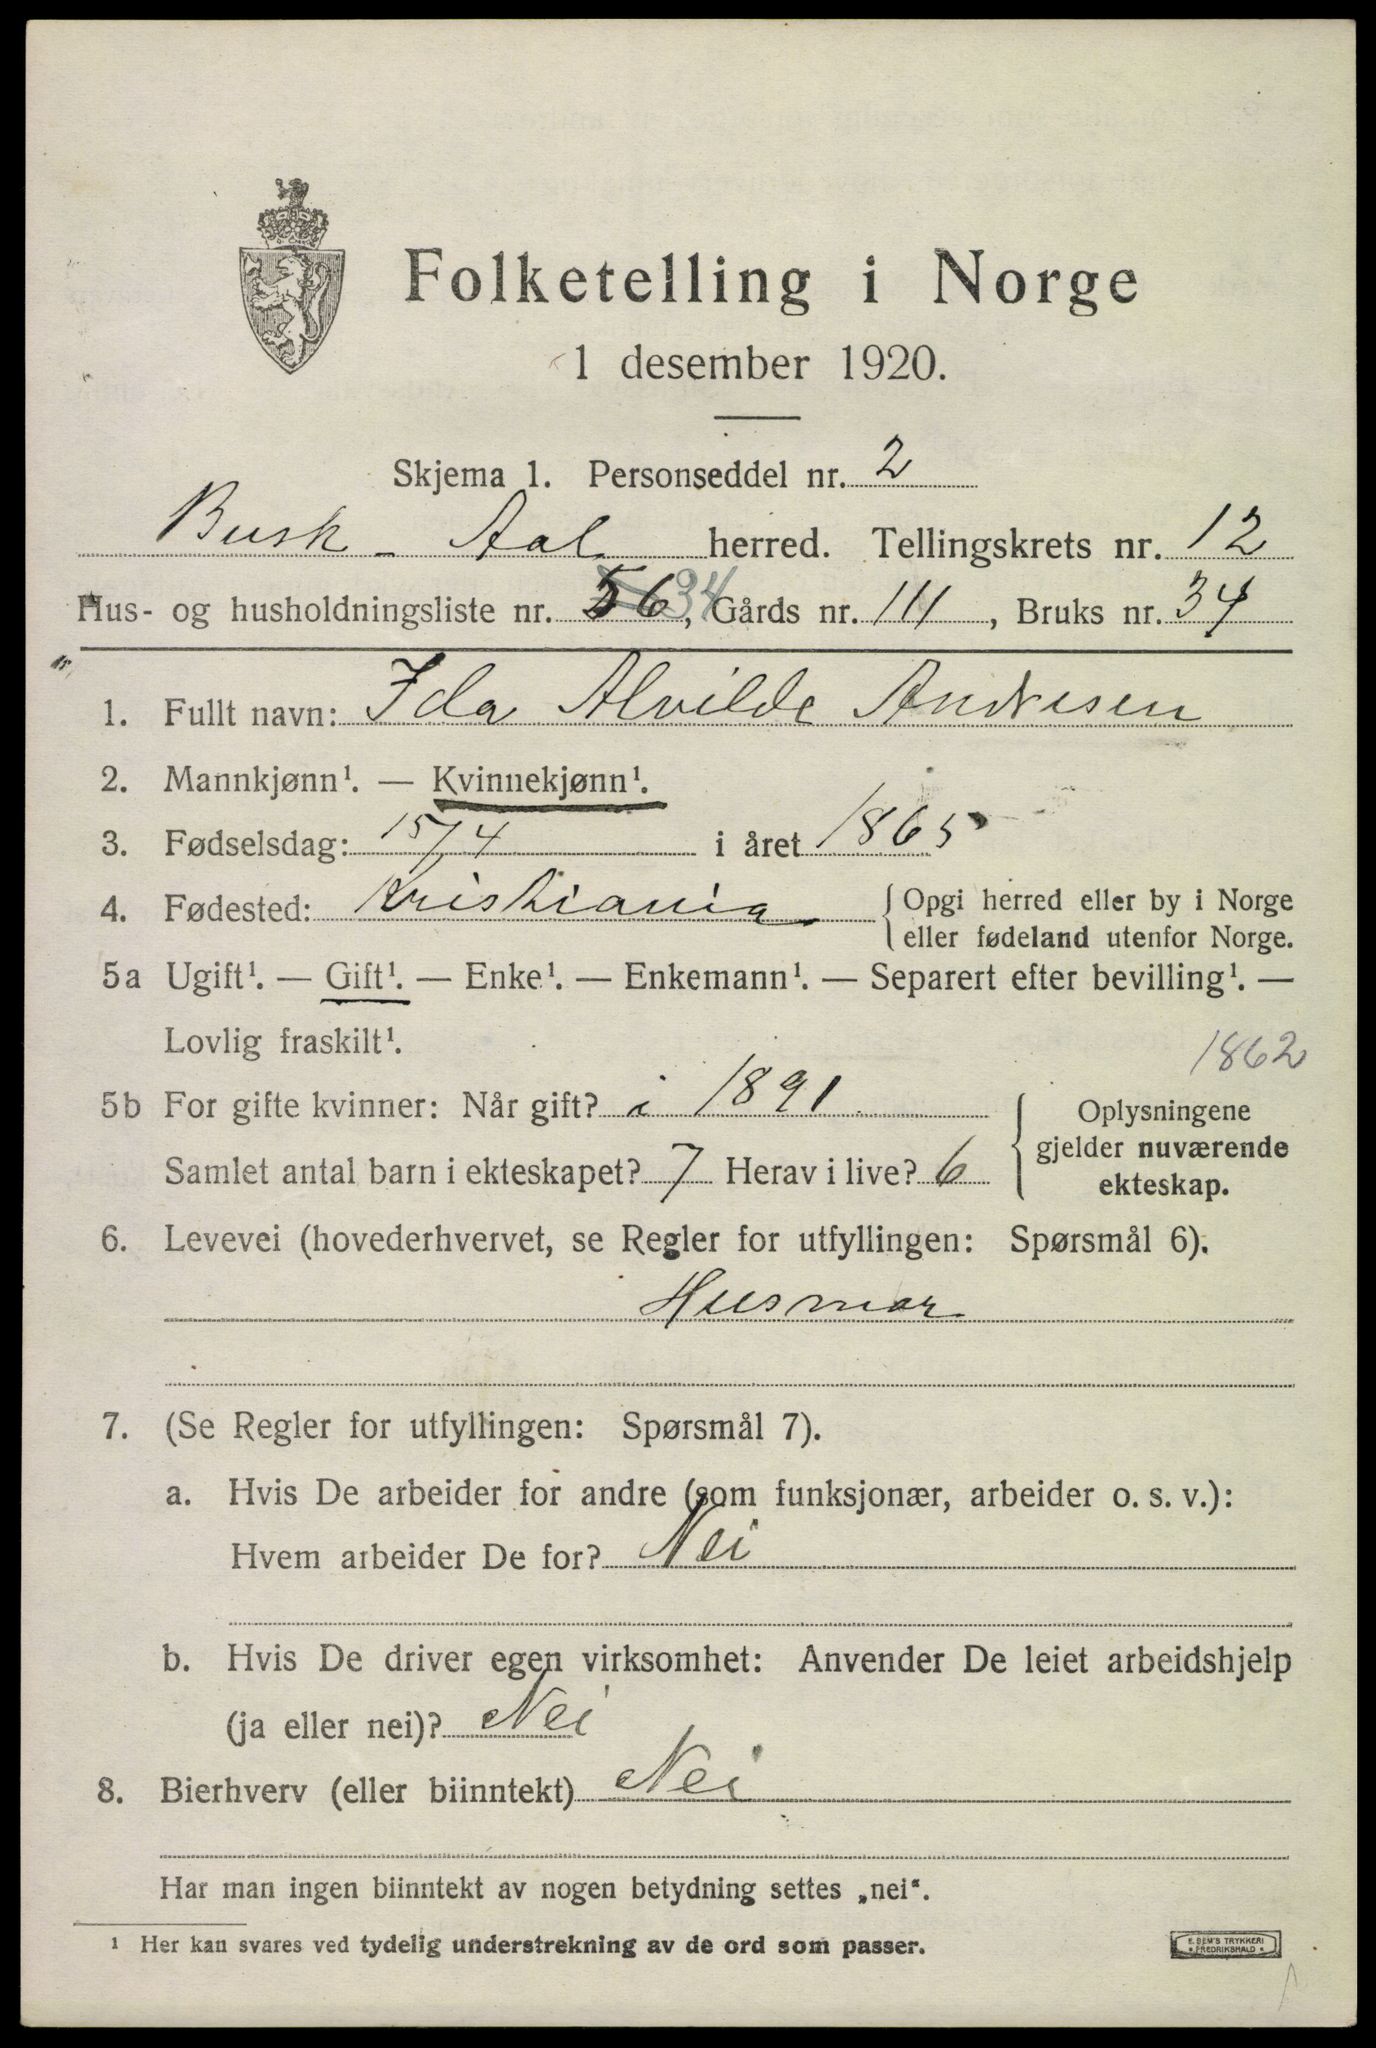 Folketelling i Norge
1 desember 1920.
Skjema 1. Personseddel nr. 2
Busk - Aal herred. Tellingskrets nr. 12
Hus- og husholdningsliste nr. 56 34, Gårds nr. 111, Bruks nr. 34
1. Fullt navn: Ida Alvilde Andresen
2. Mannkjønn¹. — Kvinnekjønn¹.
3. Fødselsdag: 15/4 i året 1865
4. Fødested: Kristiania { Opgi herred eller by i Norge
eller fødeland utenfor Norge.
5a Ugift¹. — Gift¹. — Enke¹. — Enkemann¹. — Separert efter bevilling¹. —
Lovlig fraskilt¹.
1862
5b For gifte kvinner: Når gift? i 1891
Samlet antal barn i ekteskapet? 7 Herav i live? 6
{ Oplysningene
gjelder nuværende
ekteskap.
6. Levevei (hovederhvervet, se Regler for utfyllingen: Spørsmål 6).
Husmor
7. (Se Regler for utfyllingen: Spørsmål 7).
a. Hvis De arbeider for andre (som funksjonær, arbeider o. s. v.):
Hvem arbeider De for? Nei
b. Hvis De driver egen virksomhet: Anvender De leiet arbeidshjelp
(ja eller nei)? Nei
8. Bierhverv (eller biinntekt) Nei
Har man ingen biinntekt av nogen betydning settes „nei".
¹ Her kan svares ved tydelig understrekning av de ord som passer.
E. SEM'S TRYKKERI
• FREDRIKSHALD •